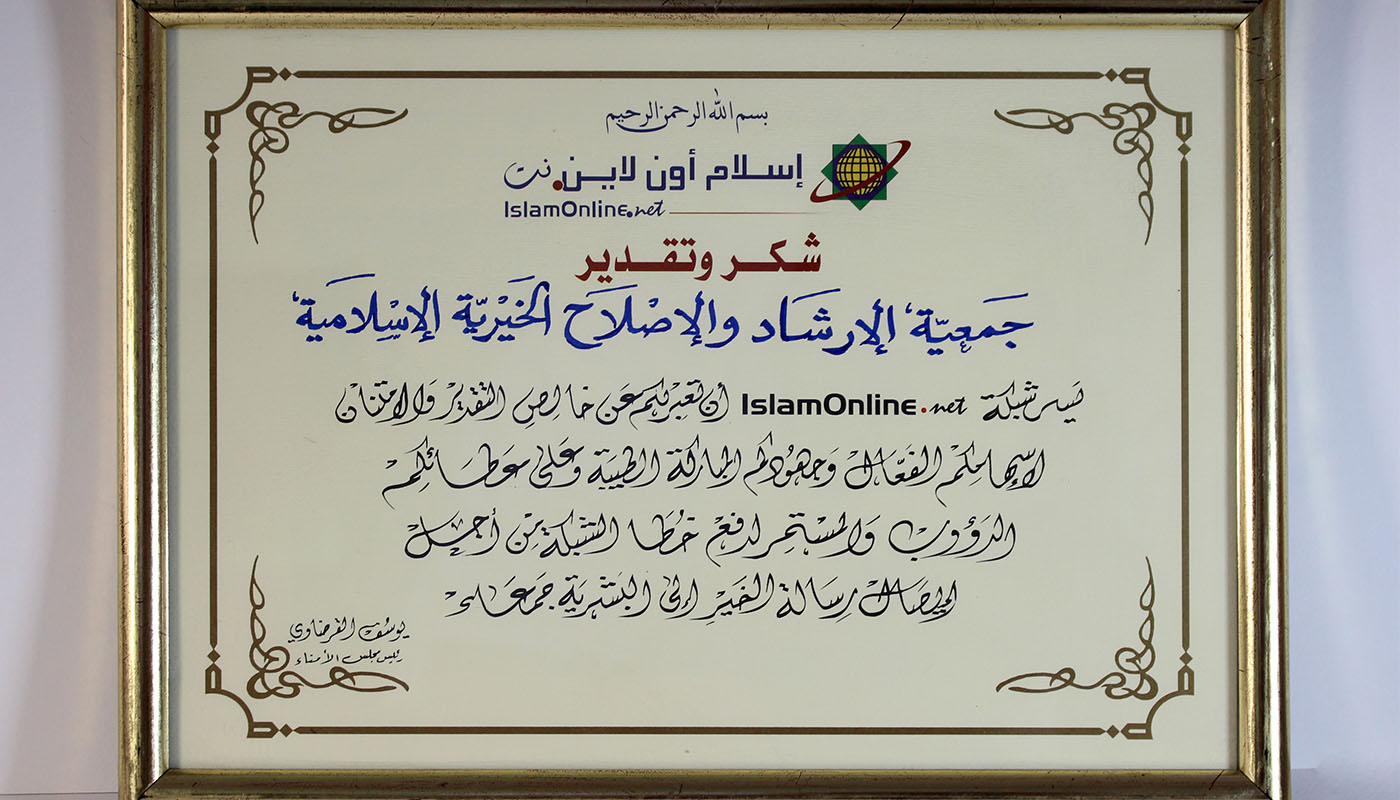 بسم الله الرحمن الرحيم
إسلام أون لاين.نت
IslamOnline.net
شكر وتقدير
جَمعيّة الإرشَاد والإصْلاَح الخَيْريّة الإسْلاميَة
يسر شبكة IslamOnline.net أن تعبر لكم عَن خالِصِ التقديْر وَالامتنان
لإسهامكم الفعّال وَجهودكم المباركة الطيبة وَعَلى عَطائكم
الدَؤوب وَالمسْتمر لدفعْ خُطا الشبكة مِن أجل
إيصال رسَالة الخَيْر إلى البَشريَة جمعَاء
يوسُف القرضاوي
رئيس مجلس الأمناء